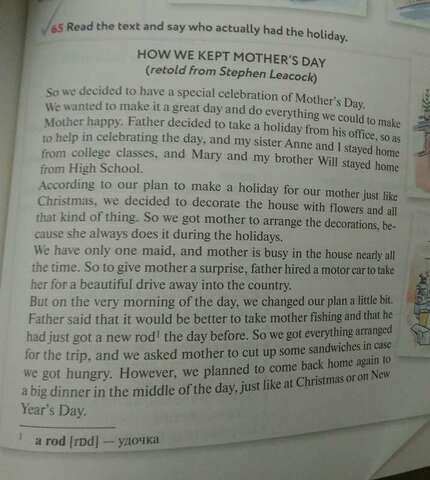 65 Read the text and say who actually had the holiday.
HOW WE KEPT MOTHER'S DAY
(retold from Stephen Leacock)
So we decided to have a special celebration of Mother's Day.
We wanted to make it a great day and do everything we could to make
Mother happy. Father decided to take a holiday from his office, so as
to help in celebrating the day, and my sister Anne and I stayed home
from college classes, and Mary and my brother Will stayed home
from High School.
According to our plan to make a holiday for our mother just like
Christmas, we decided to decorate the house with flowers and all
that kind of thing. So we got mother to arrange the decorations, be-
cause she always does it during the holidays.
We have only one maid, and mother is busy in the house nearly all
the time. So to give mother a surprise, father hired a motor car to take
her for a beautiful drive away into the country.
But on the very morning of the day, we changed our plan a little bit.
Father said that it would be better to take mother fishing and that he
had just got a new rod¹ the day before. So we got everything arranged
for the trip, and we asked mother to cut up some sandwiches in case
we got hungry. However, we planned to come back home again to
a big dinner in the middle of the day, just like at Christmas or on New
Year's Day.
¹ a rod [rɒd] — удочка